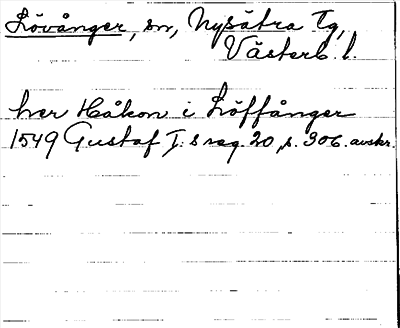 Lövånger, sn, Nysätra Tg,
Västerb. l.
her Håkon i Löffånger
1549 Gustaf I:s reg. 20, s. 306. avskr.